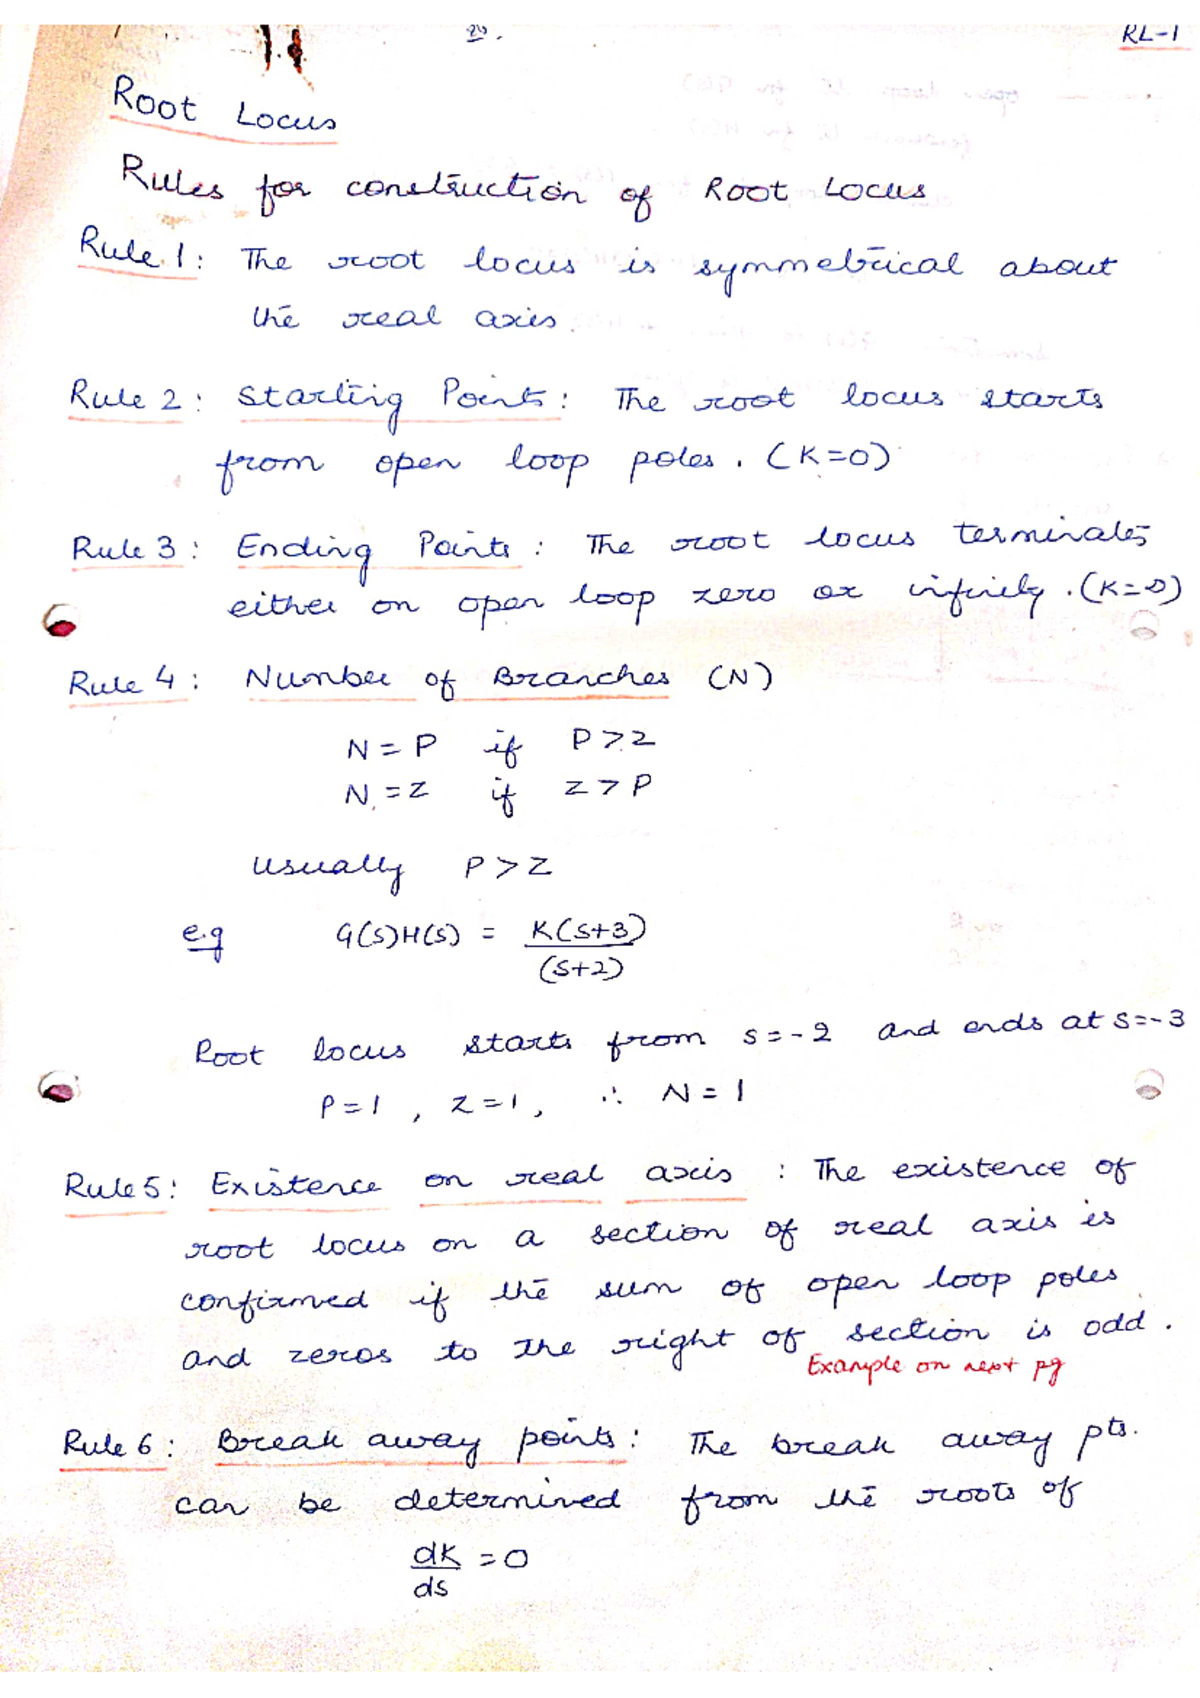 RL-1
Root Locus
Rules for construction of Root Locus
Rule 1: The root locus is symmetrical about
the real axis.
Rule 2: Starting Points: The root locus starts
from open loop poles. (K=0)
Rule 3: Ending Points: The root locus terminates
either on open loop zero or infinity. (K=∞)
Rule 4: Number of Branches (N)
N = P if P > Z
N = Z if Z > P
Usually P > Z
e.g G(s)H(s) = K(s+3)
(s+2)
Root locus starts from s=-2 and ends at s=-3
P=1, Z=1, ∴ N=1
Rule 5: Existence on real axis : The existence of
root locus on a section of real axis is
confirmed if the sum of open loop poles
and zeros to the right of section is odd.
Example on next pg
Rule 6: Break away points: The break away pts.
can be determined from the roots of
dK = 0
ds